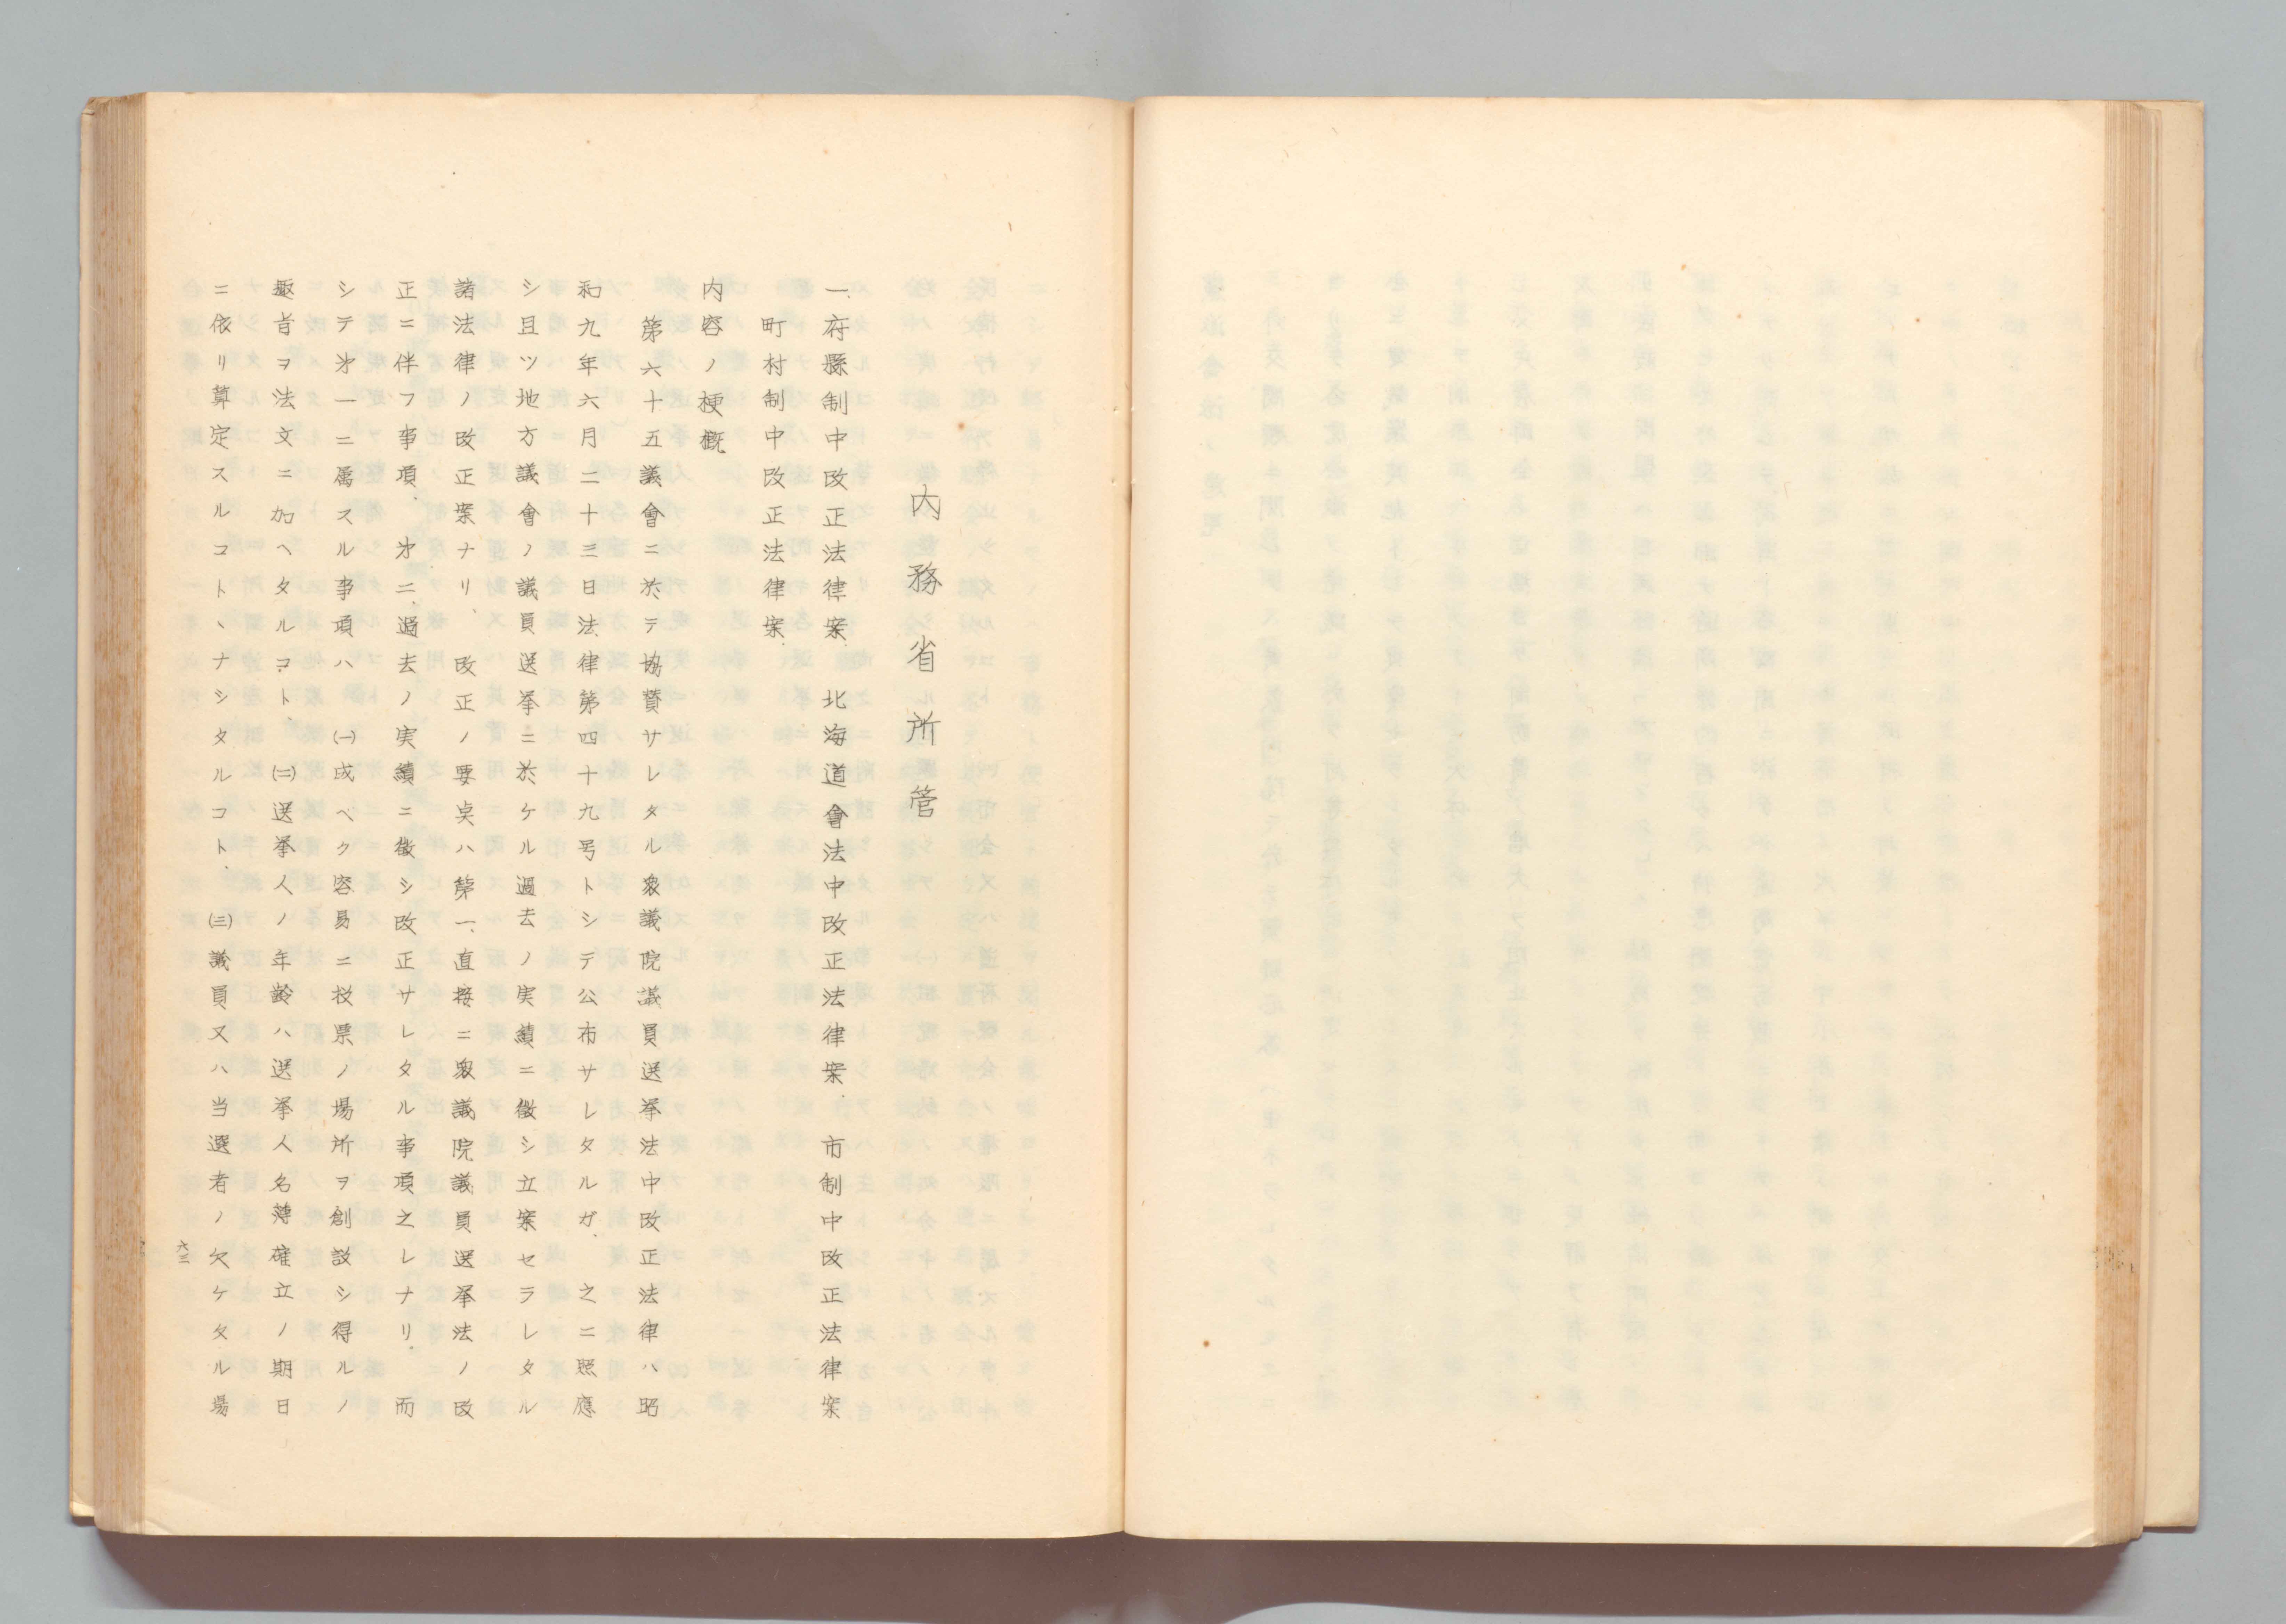 内務省所管
一、府縣制中改正法律案、北海道會法中改正法律案、市制中改正法律案
町村制中改正法律案、
内容ノ梗概
第六十五議會ニ於テ協賛サレタル衆議院議員選挙法中改正法律ハ昭
和九年六月二十三日法律第四十九号トシテ公布サレタルガ、之ニ照應
シ且ツ地方議會ノ議員選挙ニ於ケル過去ノ実績ニ徴シ立案セラレタル
諸法律ノ改正案ナリ、改正ノ要点ハ第一、直接ニ衆議院議員選挙法ノ改
正ニ伴フ事項、才二、過去ノ実績ニ徴シ改正サレタル事項之レナリ、而
シテ才一ニ属スル事項ハ㈠成ベク容易ニ投票ノ場所ヲ創設シ得ルノ
趣旨ヲ法文ニ加ヘタルコト、㈡選挙人ノ年齢ハ選挙人名簿確立ノ期日
ニ依リ算定スルコトヽナシタルコト、㈢議員又ハ当選者ノ欠ケタル場
六三